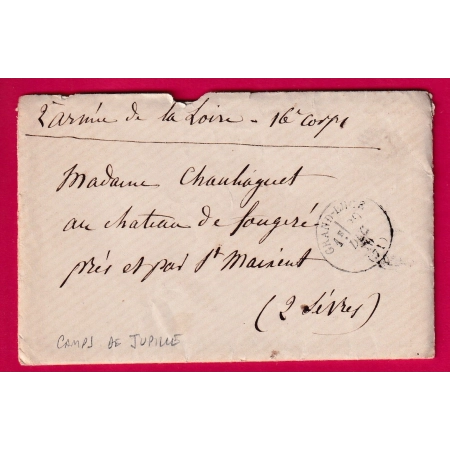 2e armée de la Loire - 16e corps
Madame Chauhaguet
au chateau de fougeré
près et par St Maixent
(2 Sèvres)
GRAND-LUCE
DEC
CAMPS DE JUPILLE